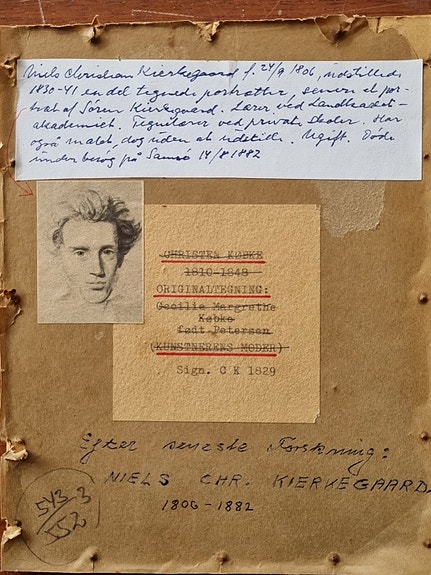 Niels Christian Kierkegaard f. 24/9 1806, udstillede
1830-41 en del tegnede portrætter, senere et por-
træt af Søren Kierkegaard. Lærer ved Landkadet-
akademiet. Tegnelærer ved private steder. Har
også malet, dog uden at udstille. Ugift. Døde
under besøg på Samsø 14/8 1882
CHRISTEN KØBKE
1810-1848
ORIGINALTEGNING:
Cecilie Margrethe
Købke
født Petersen
(KUNSTNERENS MODER)
Sign. C K 1829
Efter seneste Forskning:
NIELS CHR. KIERKEGAARD
1806-1882
543-3
552